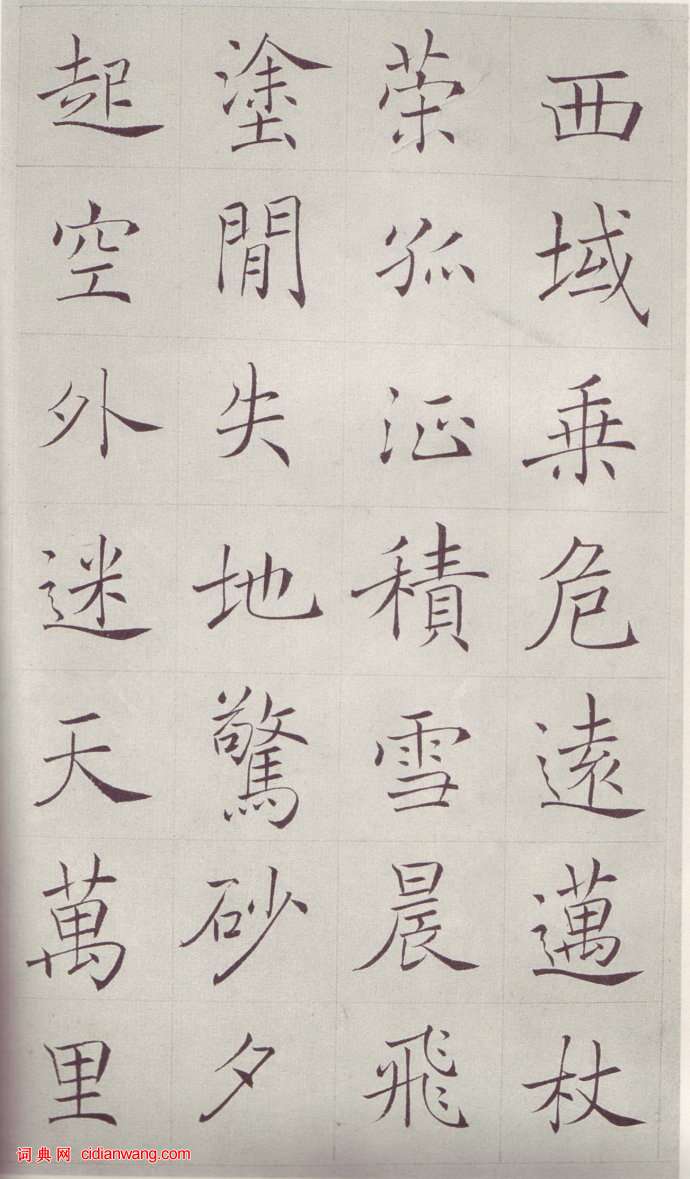 西域乗危遠邁杖
荣孤征積雪晨飛
塗間失地驚砂夕
起空外迷天萬里
词典网 cidianwang.com